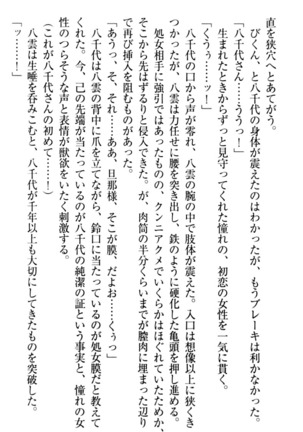 直を狭穴へとあてがう。
びくん、と八千代の身体が震えたのはわかったが、もうブレーキは利かなかった。
「八千代さん……ううっ！」
生まれたときからずっと見守ってくれた憧れの、初恋の女性を一気に貫く。
「くうぅ……ッ！」
八千代の口から声が零れ、八雲の腕の中で肢体が震える。入口は想像以上に狭くき
つかったが、八雲は力任せに腰を突き出し、鉄のように硬化した亀頭を押し進める。
処女相手に強引ではあったものの、クンニアクメでいくらかはほぐれていたためか、
そこから先はずるりと侵入できた。が、肉筒の半分くらいまでが膣肉に埋まった辺り
で再び挿入を阻むものがあった。
「あうっ、そ、それ……ああ、旦那様、そこが膜、だよお……くぅっ」
八千代は八雲の背中に爪を立てながら、鈴口に当たっているのが処女膜だと教えて
くれた。今、己の先端が当たっているのが八千代の純潔の証という事実と、憧れの女
性のつらそうな声と表情が獣欲をいたく刺激する。
（これが八千代さんの初めて……！）
八雲は生唾を呑みこむと、八千代が千年以上も大切にしてきたものを突破した。
「ッ……！」